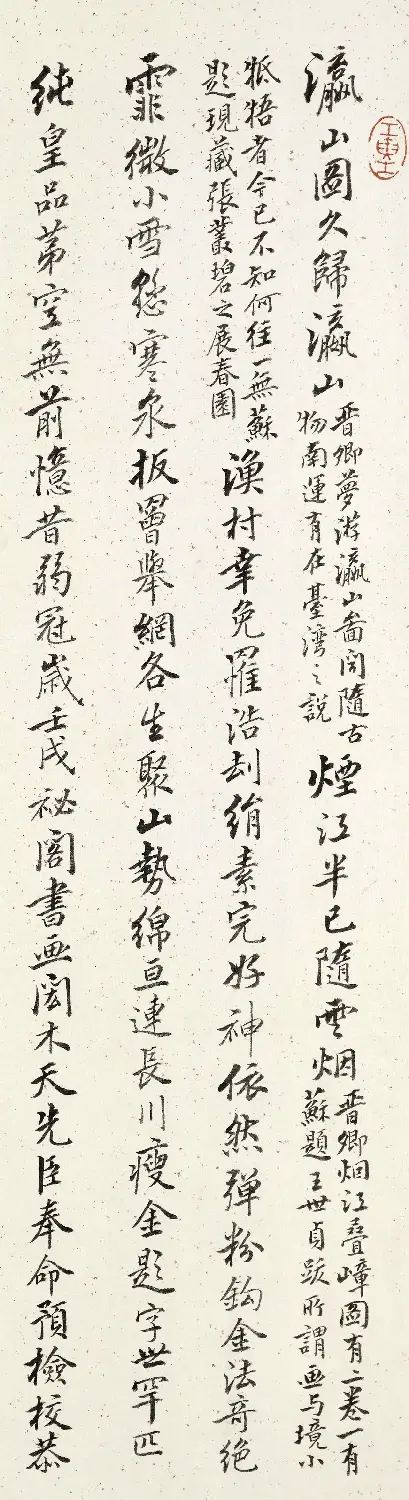 瀛山圖久歸瀛山晋卿夢游瀛山啚聞隨古物南運有在臺灣之說煙江半已隨雲烟晋卿烟江叠嶂圖有二卷一有蘇題王世貞跋所謂画与境小
牴牾者今已不知何往一無蘇題現藏張叢碧之展春園漁村幸免罹浩刦絹素完好神依然彈粉鈎金法奇絕
霏微小雪愁寒泉扳罾舉網各生聚山勢綿亘連長川瘦金題字世罕匹
純皇品苐空無前憶昔弱冠歲壬戌祕閣書画閟木天先臣奉命預檢校恭